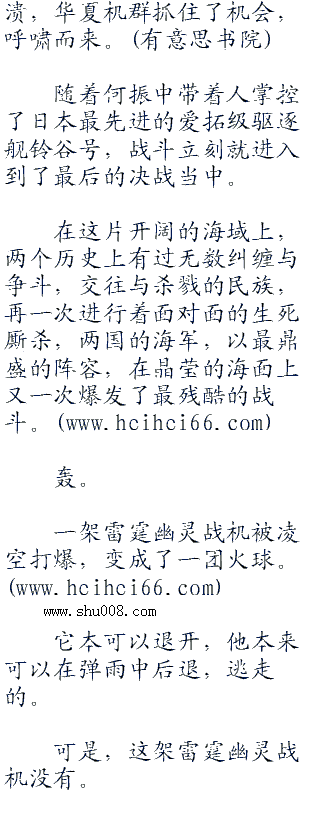 溃，华夏机群抓住了机会，
呼啸而来。(有意思书院)
随着何振中带着人掌控
了日本最先进的爱拓级驱逐
舰铃谷号，战斗立刻就进入
到了最后的决战当中。
在这片开阔的海域上，
两个历史上有过无数纠缠与
争斗，交往与杀戮的民族，
再一次进行着面对面的生死
厮杀，两国的海军，以最鼎
盛的阵容，在晶莹的海面上
又一次爆发了最残酷的战
斗。(www.hcihci66.com)
轰。
一架雷霆幽灵战机被凌
空打爆，变成了一团火球。
(www.hcihci66.com)
www.shu008.com
它本可以退开，他本来
可以在弹雨中后退，逃走
的。
可是，这架雷霆幽灵战
机没有。